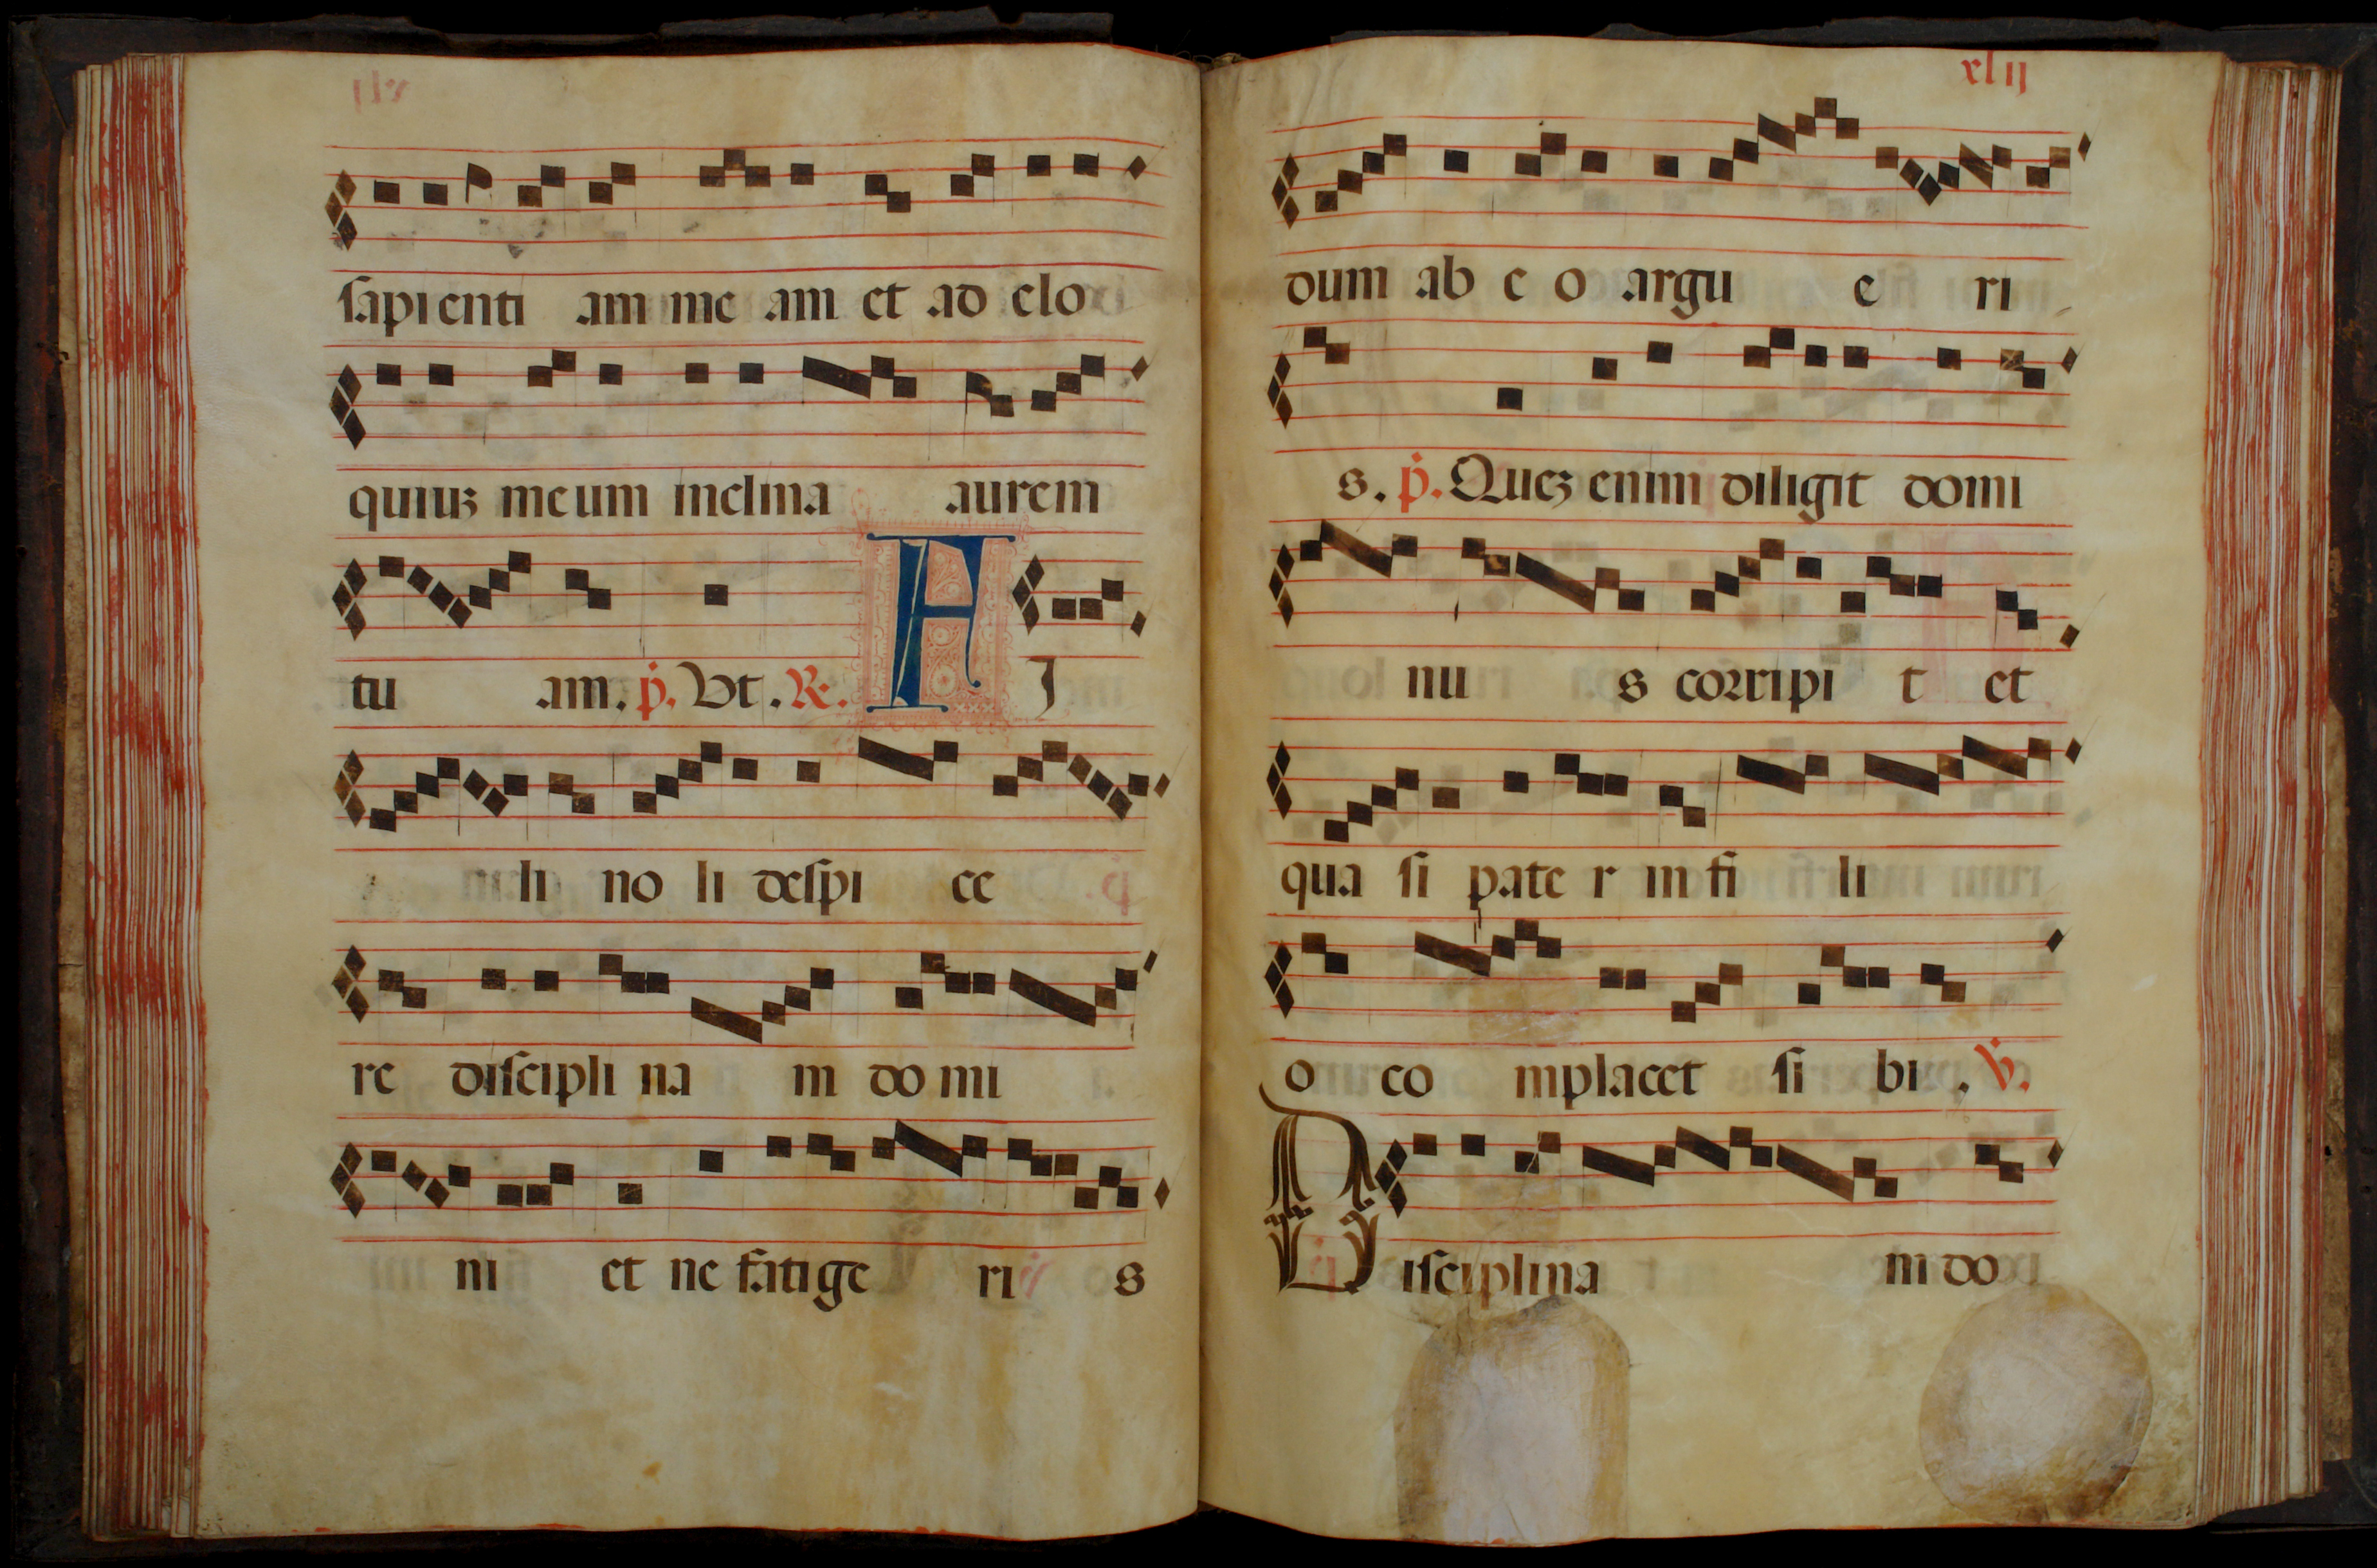 sapienti am me am et ad elo
quiuz meum inclina aurem
tu am. p. Ut. R. F I
li no li despi ce
re discipli na m do mi
ni et ne fatige ri s
xlij
dum ab e o argu e ri
s. p. Quez enim diligit domi
nu s corripi t et
qua si pate r in fi li
o co mplacet si bi. V.
Disciplina m do